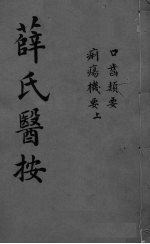 薛氏醫按
口齒類要
癘瘍機要上